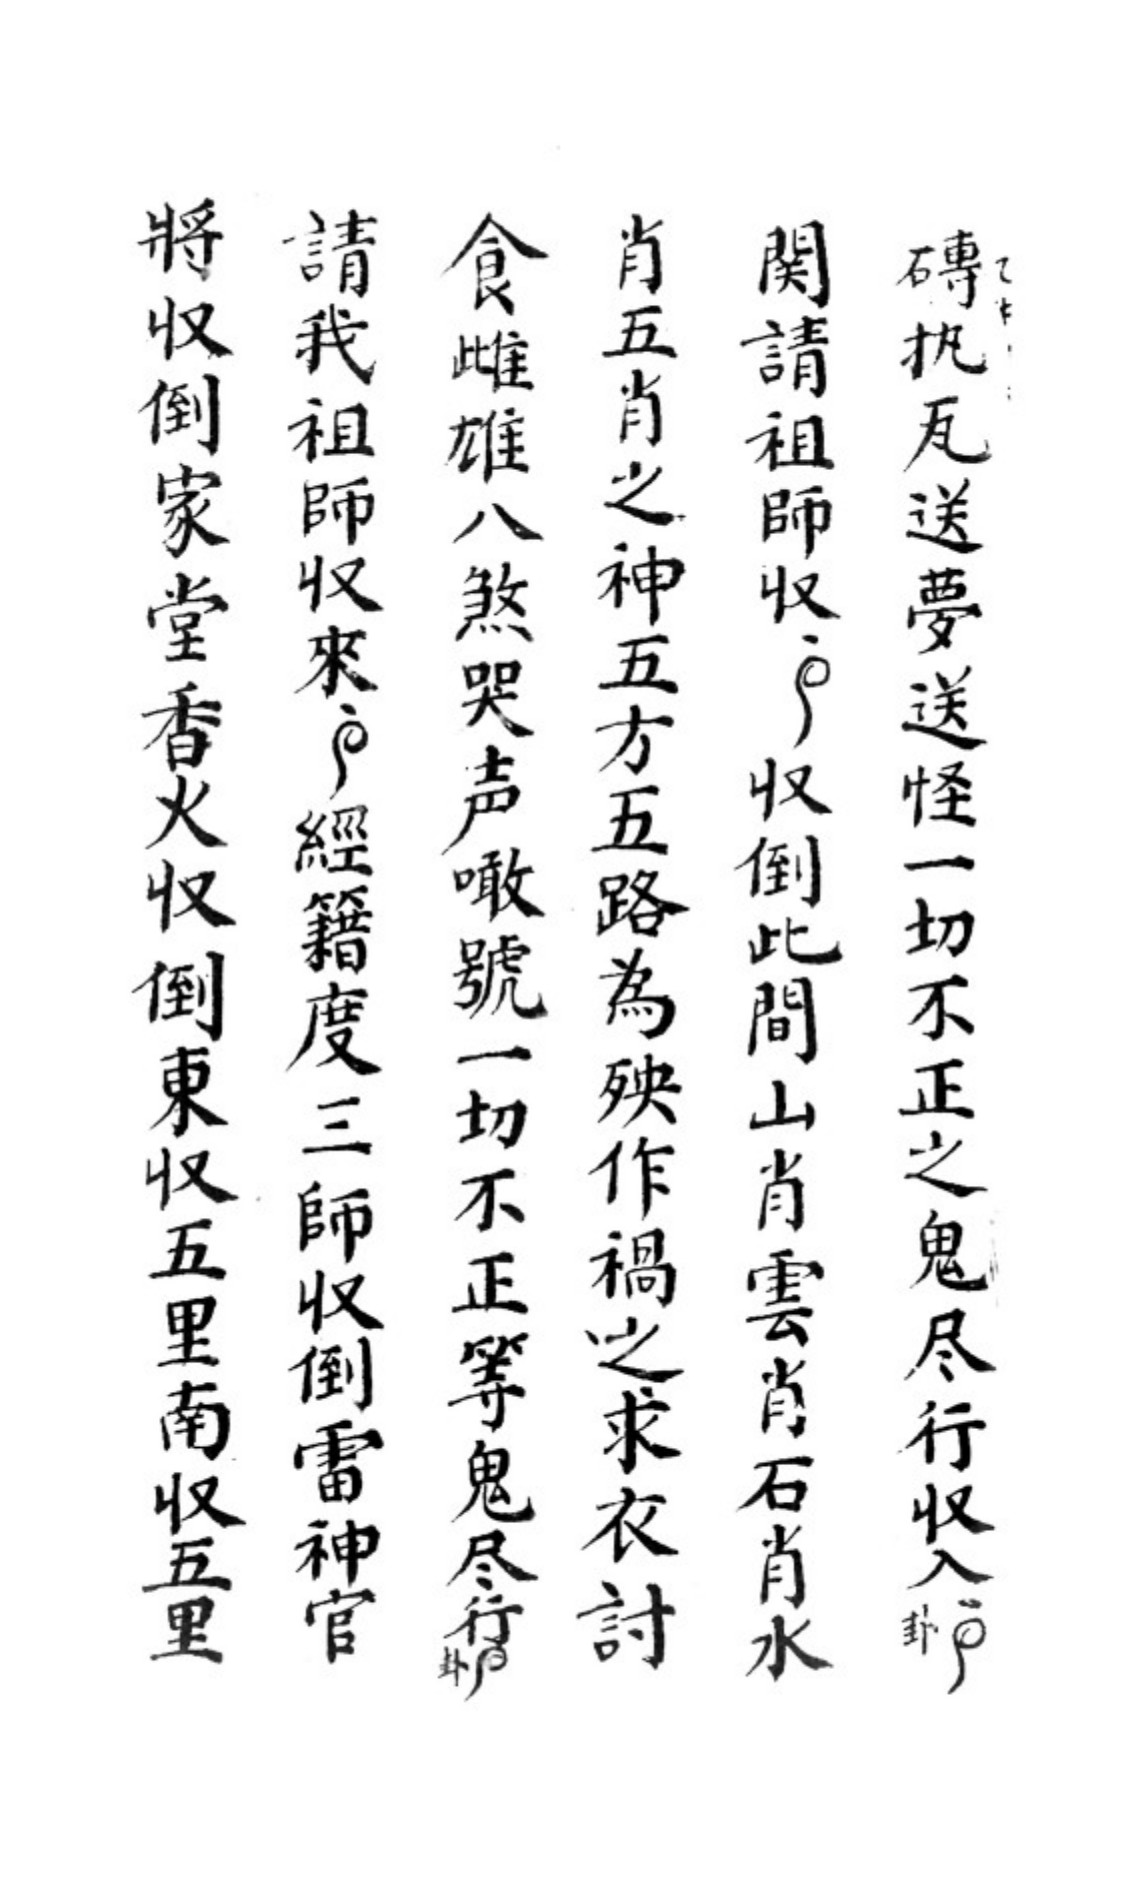 磚执瓦送夢送怪一切不正之鬼尽行収入卦
関請祖師収収倒此間山肖雲肖石肖水
肖五肖之神五方五路為殃作禍之求衣討
食雌雄八煞哭声噉號一切不正等鬼尽行卦
請我祖師収來經籍度三師収倒雷神官
將収倒家堂香火収倒東収五里南収五里